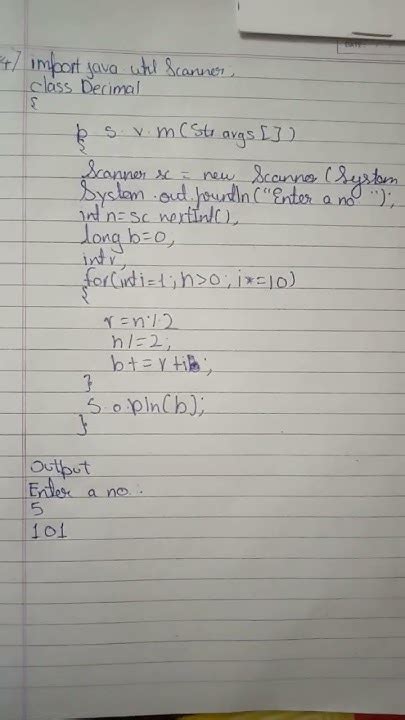 4) import java util Scanner,
class Decimal
{
p s. v. m (Str args [])
{
Scanner sc = new Scanner (System
System.out.println("Enter a no");
int n=sc nextInt(),
long b=0,
int r,
for(int i=1; n>0; i*=10)
{
r=n%2
n/=2;
b+=r*i;
}
s.o.pln(b);
}
Output
Enter a no.:
5
101